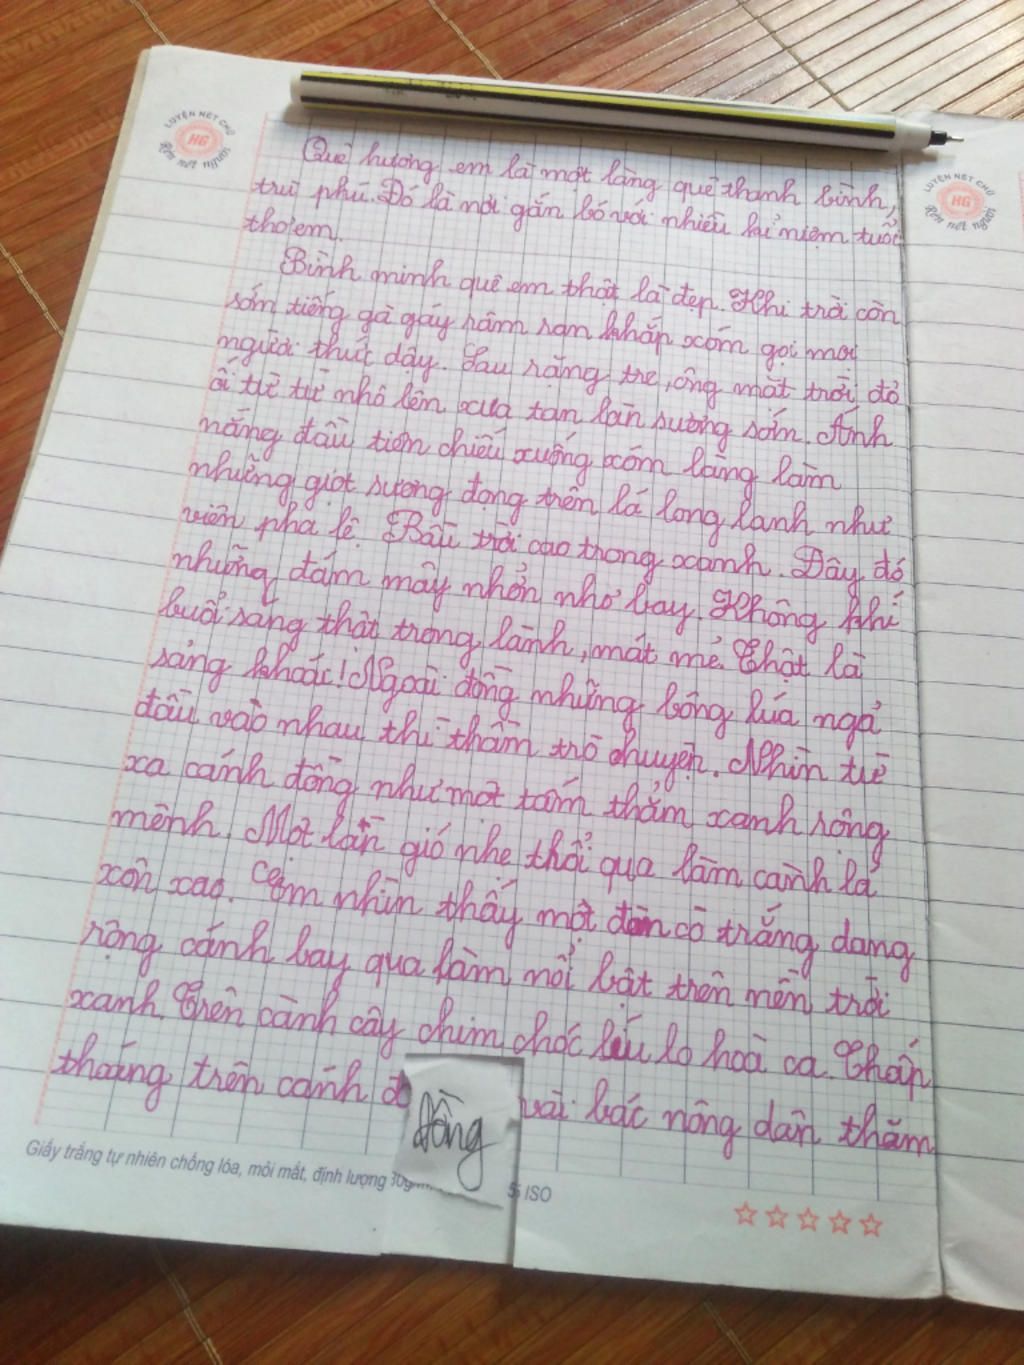 LUYỆN NÉT CHỮ
HG
Rèn nết người
LUYỆN NÉT CHỮ
HG
Rèn nết người
Quê hương em là một làng quê thanh bình,
trù phú. Đó là nơi gắn bó với nhiều kỉ niệm tuổi
thơ em.
Bình minh quê em thật là đẹp. Khi trời còn
sớm tiếng gà gáy râm ran khắp xóm gọi mọi
người thức dậy. Sau rặng tre, ông mặt trời đỏ
ối từ từ nhô lên xua tan làn sương sớm. Ánh
nắng đầu tiên chiếu xuống xóm làng làm
những giọt sương đọng trên lá long lanh như
viên pha lê. Bầu trời cao trong xanh. Đây đó
những đám mây nhởn nhơ bay. Không khí
buổi sáng thật trong lành, mát mẻ. Thật là
sảng khoái! Ngoài đồng những bông lúa ngả
đầu vào nhau thì thầm trò chuyện. Nhìn từ
xa cánh đồng như một tấm thảm xanh rộng
mênh. Một làn gió nhẹ thổi qua làm cành lá
xôn xao. Em nhìn thấy một đàn cò trắng dang
rộng cánh bay qua làm nổi bật trên nền trời
xanh. Trên cành cây chim chóc líu lo hoà ca. Thấp
thoáng trên cánh đồng vài bác nông dân thăm
Giấy trắng tự nhiên chống lóa, mỏi mắt, định lượng ISO